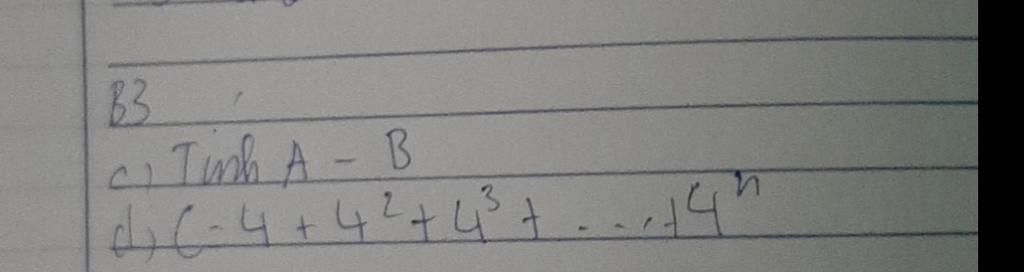 B3
c) Tính A - B
d) C = 4 + 4² + 4³ + ... + 4ⁿ